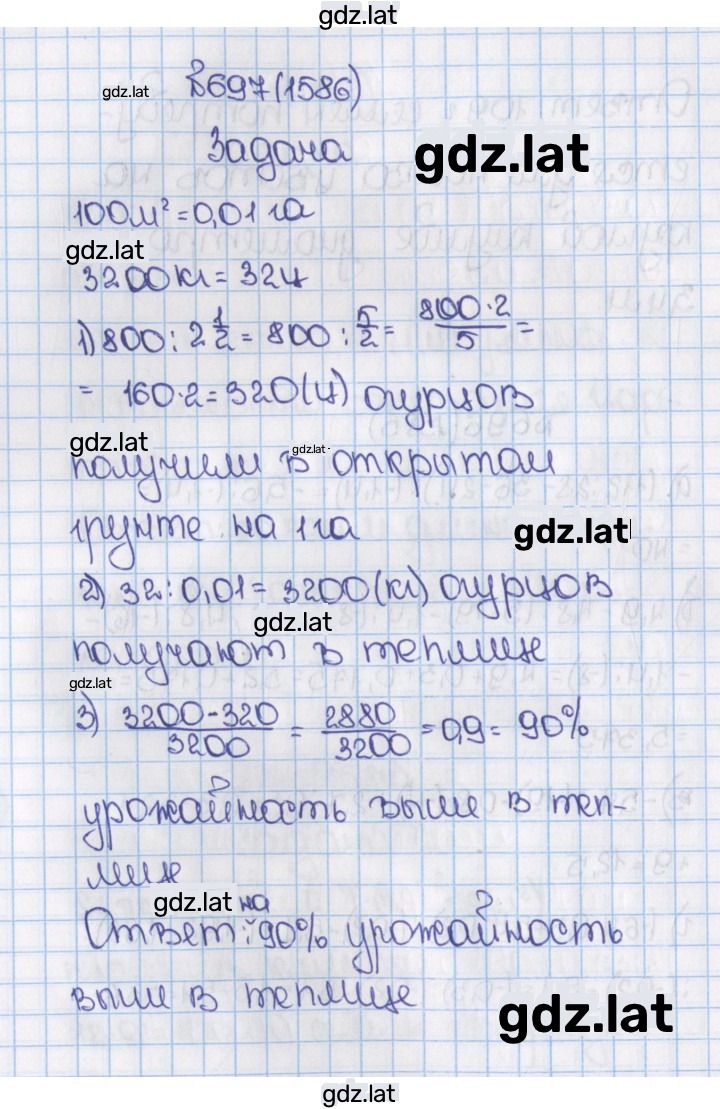 gdz.lat
№697(1586)
gdz.lat
Задача
gdz.lat
100м² = 0,01 га
gdz.lat
3200 кг = 32ц
1) 800 : 2 1/2 = 800 : 5/2 = 800·2/5 =
= 160·2 = 320(ц) огурцов
gdz.lat
получили в открытом
gdz.lat
грунте на 1га
gdz.lat
2) 32 : 0,01 = 3200(кг) огурцов
gdz.lat
получают в теплице
gdz.lat
3) 3200-320/3200 = 2880/3200 = 0,9 = 90%
урожайность выше в теп-
лице
gdz.lat
Ответ: на 90% урожайность
выше в теплице
gdz.lat
gdz.lat